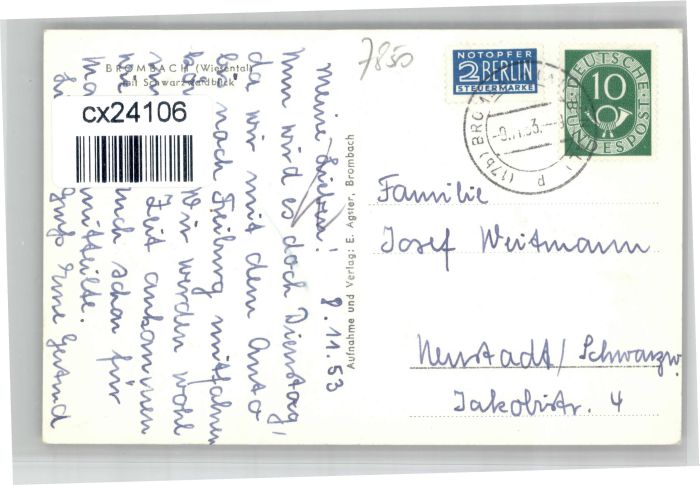 BROMBACH (Wiesental)
mit Schwarzwaldblick
cx24106
7850
Meine Lieben! 8.11.53
Nun wird es doch Dienstag,
da wir mit dem Auto
bis nach Freiburg mitfahren
Wir werden wohl
Zeit ankommen
schon für
mitteilte.
Gruß Eure Gertrud
Aufnahme und Verlag: E. Agster, Brombach
NOTOPFER
2 BERLIN
STEUERMARKE
DEUTSCHE BUNDESPOST
10
(17b) BRO
d
Familie
Josef Weitmann
Neustadt/Schwarzw.
Jakobistr. 4